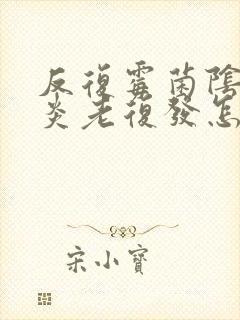 反復霉菌陰
炎老復發怎
宋小寶